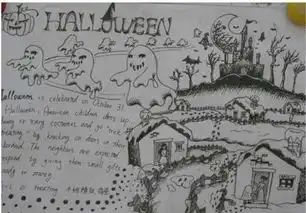 HALLOWEEN
Halloween is celebrated on October 31.
Halloween, American children dress up
funny or scary costumes and go "trick
treating" by knocking on doors in their
The neighbors are expected
respond by giving them small gifts
candy or money
treating